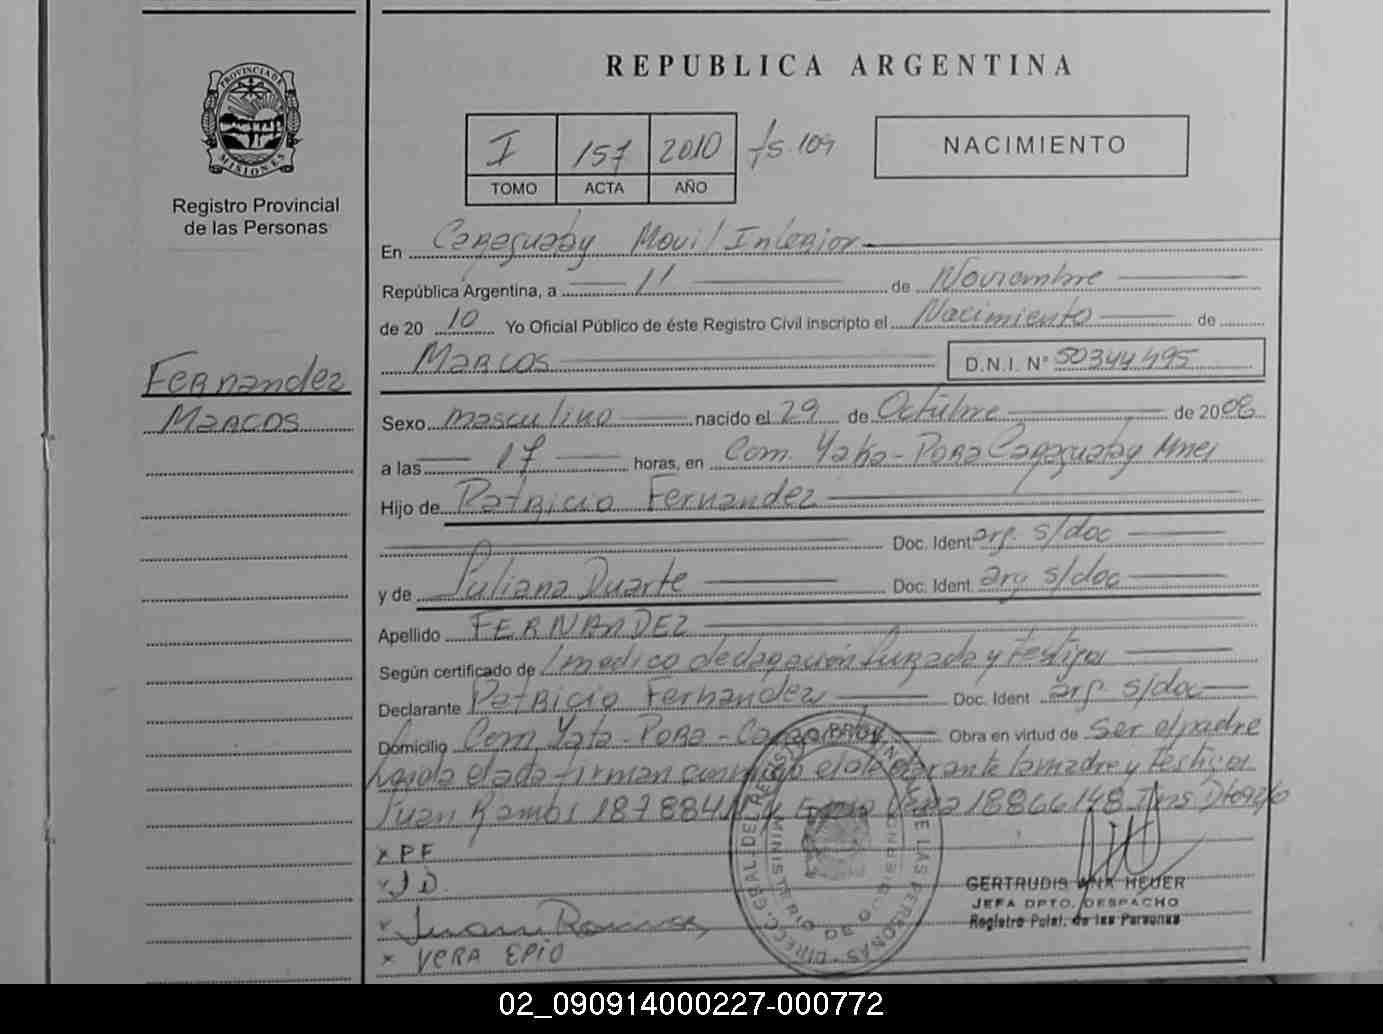 REPUBLICA ARGENTINA
PROVINCIA DE
MISIONES
Registro Provincial
de las Personas
I 157 2010 fs. 109
TOMO ACTA AÑO
NACIMIENTO
En Caraguaby Movil Interior
República Argentina, a 11 de Noviembre
de 20 10 Yo Oficial Público de éste Registro Civil inscripto el Nacimiento de
Marcos D.N.I. Nº 50344495
Fernandez
Marcos
Sexo masculino nacido el 29 de Octubre de 20
a las 17 horas, en Com. Pora Caraguaby Mnes
Hijo de Patricio Fernandez
Doc. Ident arg. s/doc
y de Juliana Duarte Doc. Ident. arg s/doc
Apellido FERNANDEZ
Según certificado de medico y testigos
Declarante Patricio Fernandez Doc. Ident arg. s/doc
Domicilio Com. Pora - Obra en virtud de Ser el padre
el acta firman conmigo el declarante la madre y testigos
Juan Ramos Vera 18866148
x PF
x J D.
x Juan Ramos
x VERA EPIO
DIRECC. GRAL. DEL REGISTRO PROVINCIAL DE LAS PERSONAS
MINISTERIO DE GOBIERNO
GERTRUDIS ANA HEUER
JEFA DPTO. DESPACHO
Registro Pcial. de las Personas
02_090914000227-000772